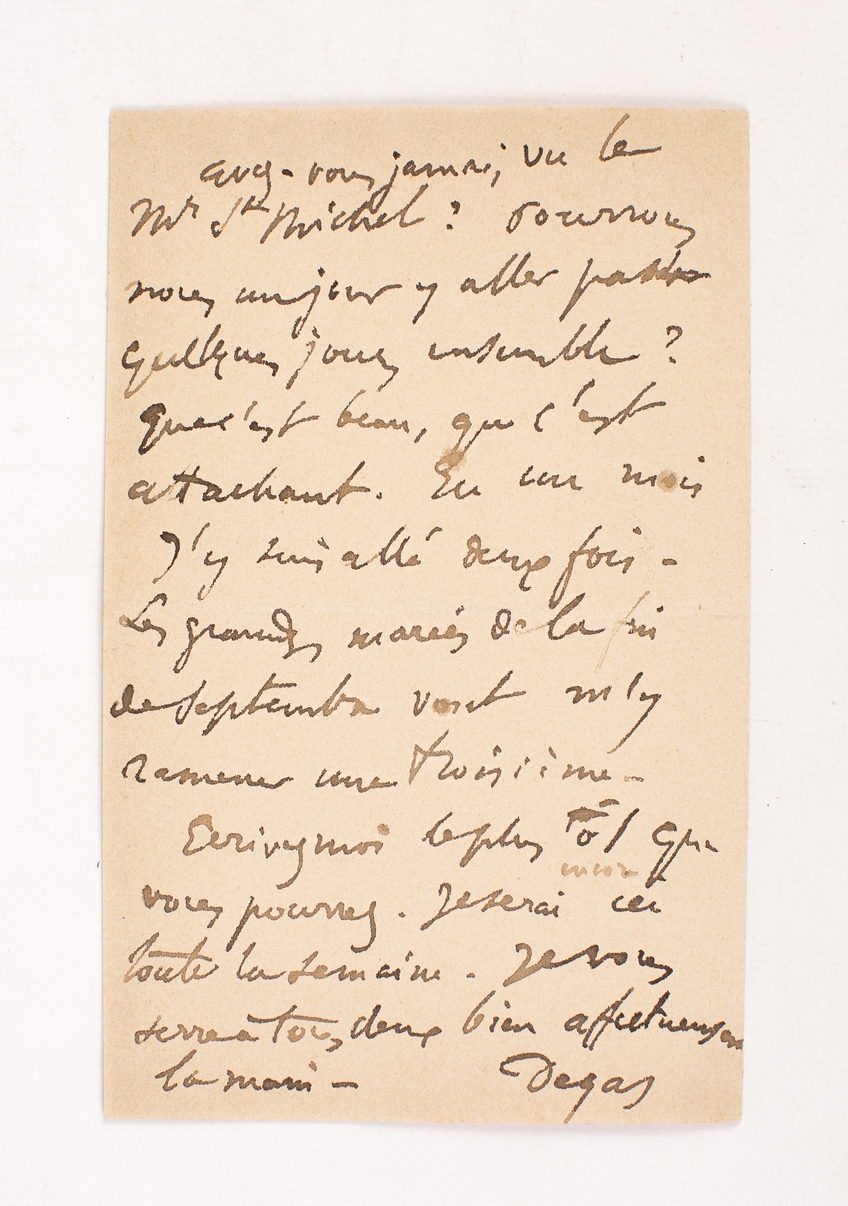 avez-vous jamais vu le
Mt St Michel ? Pourrons
nous un jour y aller passer
quelques jours ensemble ?
Que c'est beau, que c'est
attachant. En un mois
J'y suis allé deux fois -
Les grandes marées de la fin
de Septembre vont m'y
ramener une troisième -
Ecrivez moi le plus tôt que
encore
vous pourrez. Je serai ici
toute la semaine. Je vous
serre à tous deux bien affectueusem
la main - Degas